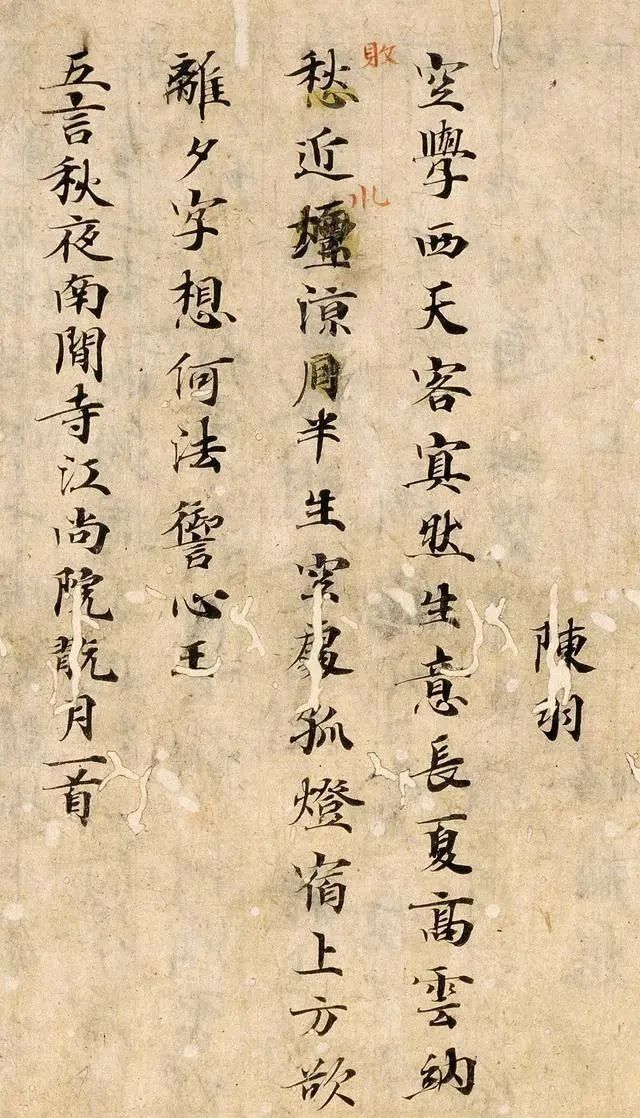 陳羽
空學西天客冥然生意長夏高雲納
敗
愁近涼月半生空處孤燈宿上方欲
離夕字想何法心王
五言秋夜南間寺江尚院翫月一首